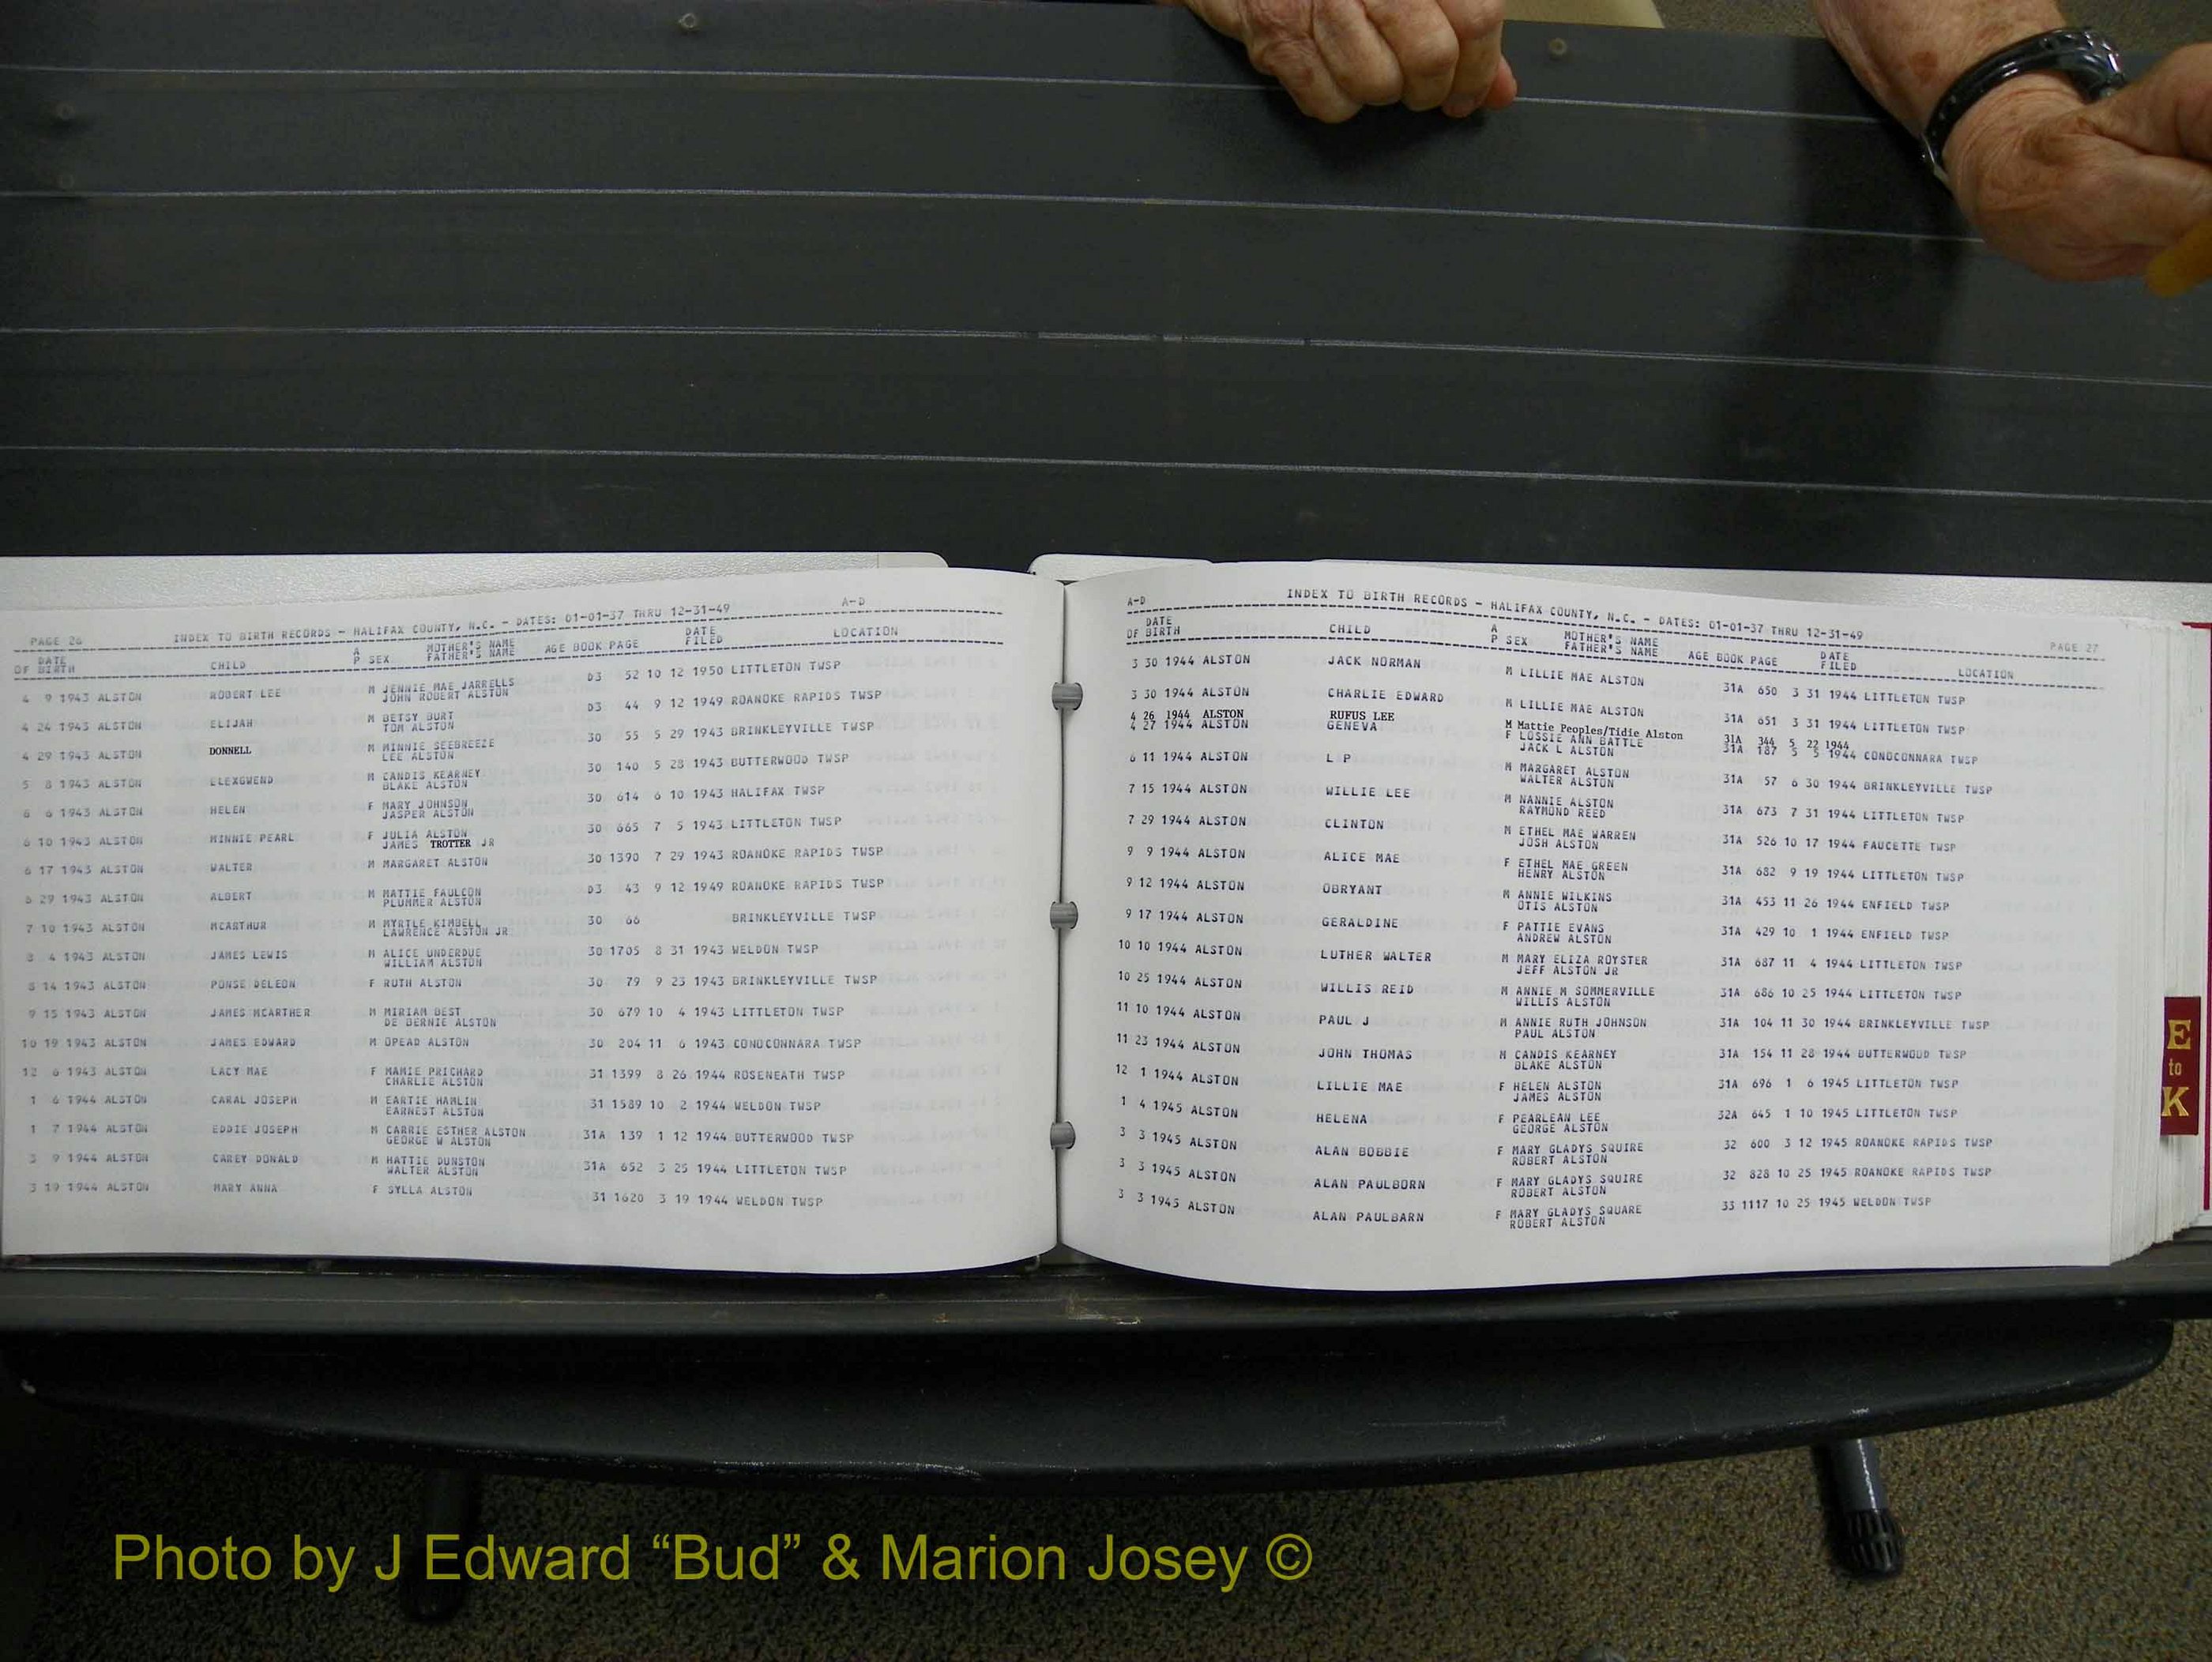 PAGE 26 INDEX TO BIRTH RECORDS - HALIFAX COUNTY, N.C. - DATES: 01-01-37 THRU 12-31-49 A-D
DATE OF BIRTH CHILD A P SEX MOTHER'S NAME FATHER'S NAME AGE BOOK PAGE DATE FILED LOCATION
4 9 1943 ALSTON ROBERT LEE M JENNIE MAE JARRELLS D3 52 10 12 1950 LITTLETON TWSP
JOHN ROBERT ALSTON
4 24 1943 ALSTON ELIJAH M BETSY BURT D3 44 9 12 1949 ROANOKE RAPIDS TWSP
TOM ALSTON
4 29 1943 ALSTON DONNELL M MINNIE SEEBREEZE 30 55 5 29 1943 BRINKLEYVILLE TWSP
LEE ALSTON
5 8 1943 ALSTON ELEXGWEND M CANDIS KEARNEY 30 140 5 28 1943 BUTTERWOOD TWSP
BLAKE ALSTON
6 6 1943 ALSTON HELEN F MARY JOHNSON 30 614 6 10 1943 HALIFAX TWSP
JASPER ALSTON
6 10 1943 ALSTON MINNIE PEARL F JULIA ALSTON 30 665 7 5 1943 LITTLETON TWSP
JAMES TROTTER JR
6 17 1943 ALSTON WALTER M MARGARET ALSTON 30 1390 7 29 1943 ROANOKE RAPIDS TWSP
6 29 1943 ALSTON ALBERT M MATTIE FAULCON D3 43 9 12 1949 ROANOKE RAPIDS TWSP
PLUMMER ALSTON
7 10 1943 ALSTON MCARTHUR M MYRTLE KIMBELL 30 66 BRINKLEYVILLE TWSP
LAWRENCE ALSTON JR
8 4 1943 ALSTON JAMES LEWIS M ALICE UNDERDUE 30 1705 8 31 1943 WELDON TWSP
WILLIAM ALSTON
8 14 1943 ALSTON PONSE DELEON F RUTH ALSTON 30 79 9 23 1943 BRINKLEYVILLE TWSP
9 15 1943 ALSTON JAMES MCARTHER M MIRIAM BEST 30 679 10 4 1943 LITTLETON TWSP
DE BERNIE ALSTON
10 19 1943 ALSTON JAMES EDWARD M OPEAD ALSTON 30 204 11 6 1943 CONOCONNARA TWSP
12 6 1943 ALSTON LACY MAE F MAMIE PRICHARD 31 1399 8 26 1944 ROSENEATH TWSP
CHARLIE ALSTON
1 6 1944 ALSTON CARAL JOSEPH M EARTIE HAMLIN 31 1589 10 2 1944 WELDON TWSP
EARNEST ALSTON
1 7 1944 ALSTON EDDIE JOSEPH M CARRIE ESTHER ALSTON 31A 139 1 12 1944 BUTTERWOOD TWSP
GEORGE W ALSTON
3 9 1944 ALSTON CAREY DONALD M HATTIE DUNSTON 31A 652 3 25 1944 LITTLETON TWSP
WALTER ALSTON
3 19 1944 ALSTON MARY ANNA F SYLLA ALSTON 31 1620 3 19 1944 WELDON TWSP
A-D INDEX TO BIRTH RECORDS - HALIFAX COUNTY, N.C. - DATES: 01-01-37 THRU 12-31-49 PAGE 27
DATE OF BIRTH CHILD A P SEX MOTHER'S NAME FATHER'S NAME AGE BOOK PAGE DATE FILED LOCATION
3 30 1944 ALSTON JACK NORMAN M LILLIE MAE ALSTON 31A 650 3 31 1944 LITTLETON TWSP
3 30 1944 ALSTON CHARLIE EDWARD M LILLIE MAE ALSTON 31A 651 3 31 1944 LITTLETON TWSP
4 26 1944 ALSTON RUFUS LEE M Mattie Peoples/Tidie Alston 31A 344 5 22 1944
4 27 1944 ALSTON GENEVA F LOSSIE ANN BATTLE 31A 187 5 5 1944 CONOCONNARA TWSP
JACK L ALSTON
6 11 1944 ALSTON L P M MARGARET ALSTON 31A 57 6 30 1944 BRINKLEYVILLE TWSP
WALTER ALSTON
7 15 1944 ALSTON WILLIE LEE M NANNIE ALSTON 31A 673 7 31 1944 LITTLETON TWSP
RAYMOND REED
7 29 1944 ALSTON CLINTON M ETHEL MAE WARREN 31A 526 10 17 1944 FAUCETTE TWSP
JOSH ALSTON
9 9 1944 ALSTON ALICE MAE F ETHEL MAE GREEN 31A 682 9 19 1944 LITTLETON TWSP
HENRY ALSTON
9 12 1944 ALSTON OBRYANT M ANNIE WILKINS 31A 453 11 26 1944 ENFIELD TWSP
OTIS ALSTON
9 17 1944 ALSTON GERALDINE F PATTIE EVANS 31A 429 10 1 1944 ENFIELD TWSP
ANDREW ALSTON
10 10 1944 ALSTON LUTHER WALTER M MARY ELIZA ROYSTER 31A 687 11 4 1944 LITTLETON TWSP
JEFF ALSTON JR
10 25 1944 ALSTON WILLIS REID M ANNIE M SOMMERVILLE 31A 686 10 25 1944 LITTLETON TWSP
WILLIS ALSTON
11 10 1944 ALSTON PAUL J M ANNIE RUTH JOHNSON 31A 104 11 30 1944 BRINKLEYVILLE TWSP
PAUL ALSTON
11 23 1944 ALSTON JOHN THOMAS M CANDIS KEARNEY 31A 154 11 28 1944 BUTTERWOOD TWSP
BLAKE ALSTON
12 1 1944 ALSTON LILLIE MAE F HELEN ALSTON 31A 696 1 6 1945 LITTLETON TWSP
JAMES ALSTON
1 4 1945 ALSTON HELENA F PEARLEAN LEE 32A 645 1 10 1945 LITTLETON TWSP
GEORGE ALSTON
3 3 1945 ALSTON ALAN BOBBIE F MARY GLADYS SQUIRE 32 600 3 12 1945 ROANOKE RAPIDS TWSP
ROBERT ALSTON
3 3 1945 ALSTON ALAN PAULBORN F MARY GLADYS SQUIRE 32 828 10 25 1945 ROANOKE RAPIDS TWSP
ROBERT ALSTON
3 3 1945 ALSTON ALAN PAULBARN F MARY GLADYS SQUARE 33 1117 10 25 1945 WELDON TWSP
ROBERT ALSTON
E
to
K
Photo by J Edward “Bud” & Marion Josey ©